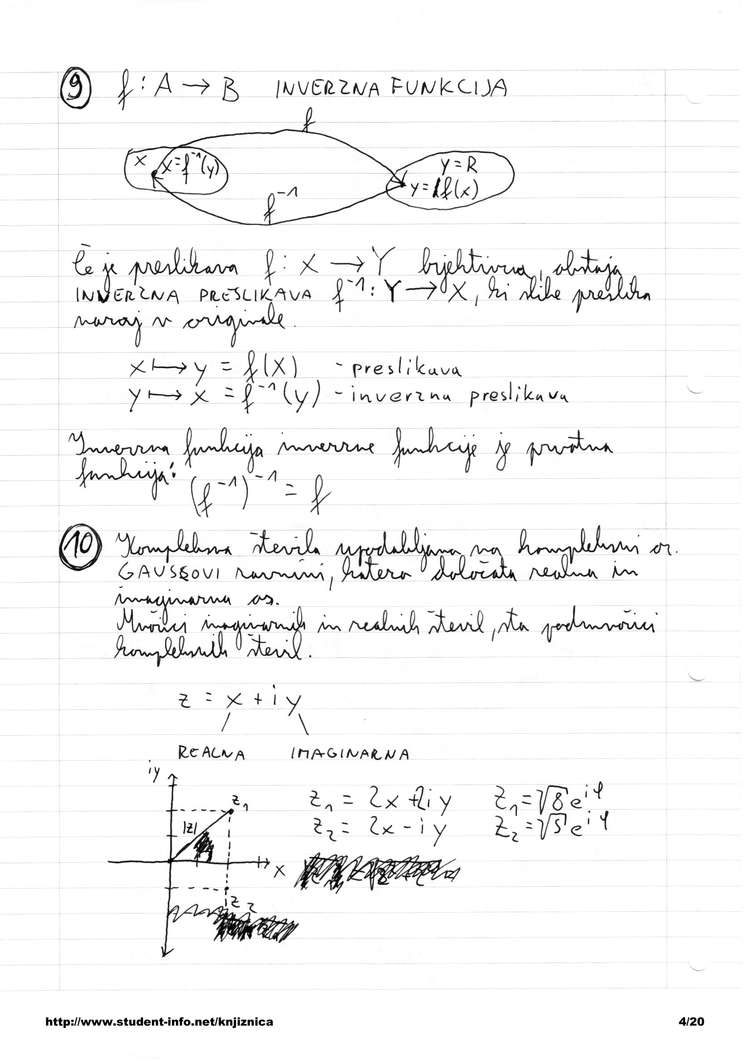 9 f: A → B INVERZNA FUNKCIJA
f
X x=f⁻¹(y) y=R
y=f(x)
f⁻¹
Če je preslikava f: X → Y bijektivna, obstaja
INVERZNA PRESLIKAVA f⁻¹: Y → X, ki slike preslika
nazaj v originale.
x ↦ y = f(x) - preslikava
y ↦ x = f⁻¹(y) - inverzna preslikava
Inverzna funkcija inverzne funkcije je prvotna
funkcija:
(f⁻¹)⁻¹ = f
10 Kompleksna števila upodabljamo na kompleksni oz.
GAUSSOVI ravnini, katero določata realna in
imaginarna os.
Množici imaginarnih in realnih števil, sta podmnožici
kompleksnih števil.
z = x + iy
REALNA IMAGINARNA
iy
z₁ z₁ = 2x+2iy z₁=√8 e^iφ
|z| z₂ = 2x-iy z₂=√5 e^iφ
x
z₂
http://www.student-info.net/knjiznica 4/20